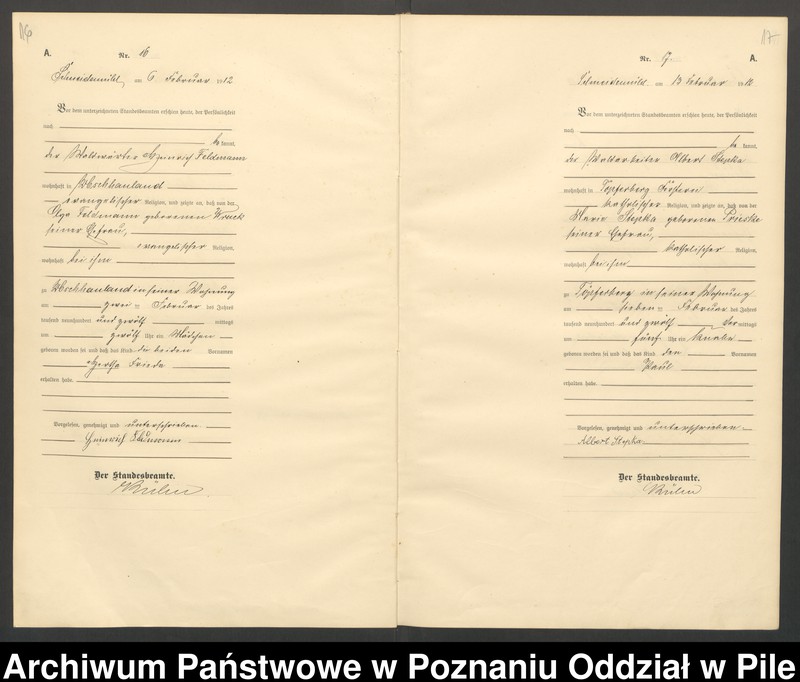 16
A.
Nr. 16
Schneidemühl, am 6 Februar 1912
Vor dem unterzeichneten Standesbeamten erschien heute, der Persönlichkeit
nach
be kannt,
der Waldwärter Heinrich Feldmann
wohnhaft in
evangelischer Religion, und zeigte an, daß von der
Feldmann geborenen
seiner Ehefrau,
evangelischer Religion,
wohnhaft bei ihm
zu in seiner Wohnung
am zwei ten Februar des Jahres
tausend neunhundert und zwölf mittags
um zwölf Uhr ein Mädchen
geboren worden sei und daß das Kind die beiden Vornamen
Hertha Frieda
erhalten habe.
Vorgelesen, genehmigt und unterschrieben
Heinrich
Der Standesbeamte.
17
Nr. 17.
A.
Schneidemühl, am 13 Februar 1912
Vor dem unterzeichneten Standesbeamten erschien heute, der Persönlichkeit
nach
be kannt,
der Waldarbeiter Albert Stepka
wohnhaft in Töpferberg
katholischer Religion, und zeigte an, daß von der
Marie Stepka geborenen
seiner Ehefrau,
katholischer Religion,
wohnhaft bei ihm
zu Töpferberg in seiner Wohnung
am sieben ten Februar des Jahres
tausend neunhundert und zwölf Vor mittags
um fünf Uhr ein Knabe
geboren worden sei und daß das Kind den Vornamen
Paul
erhalten habe.
Vorgelesen, genehmigt und unterschrieben
Albert Stepka
Der Standesbeamte.
Archiwum Państwowe w Poznaniu Oddział w Pile